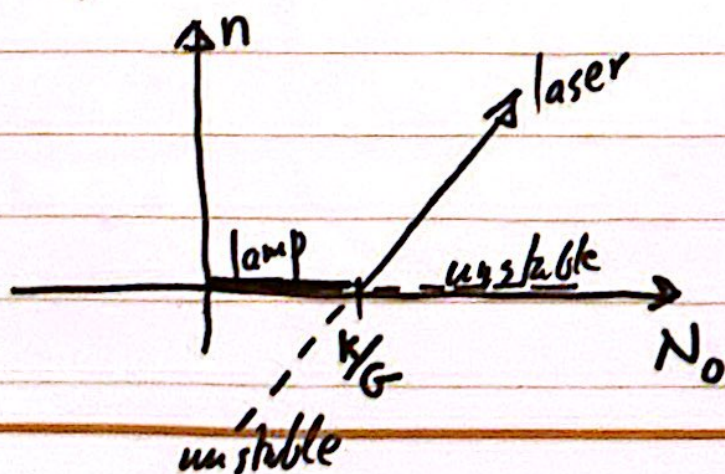 n
laser
lamp
unstable
k/G
N₀
unstable